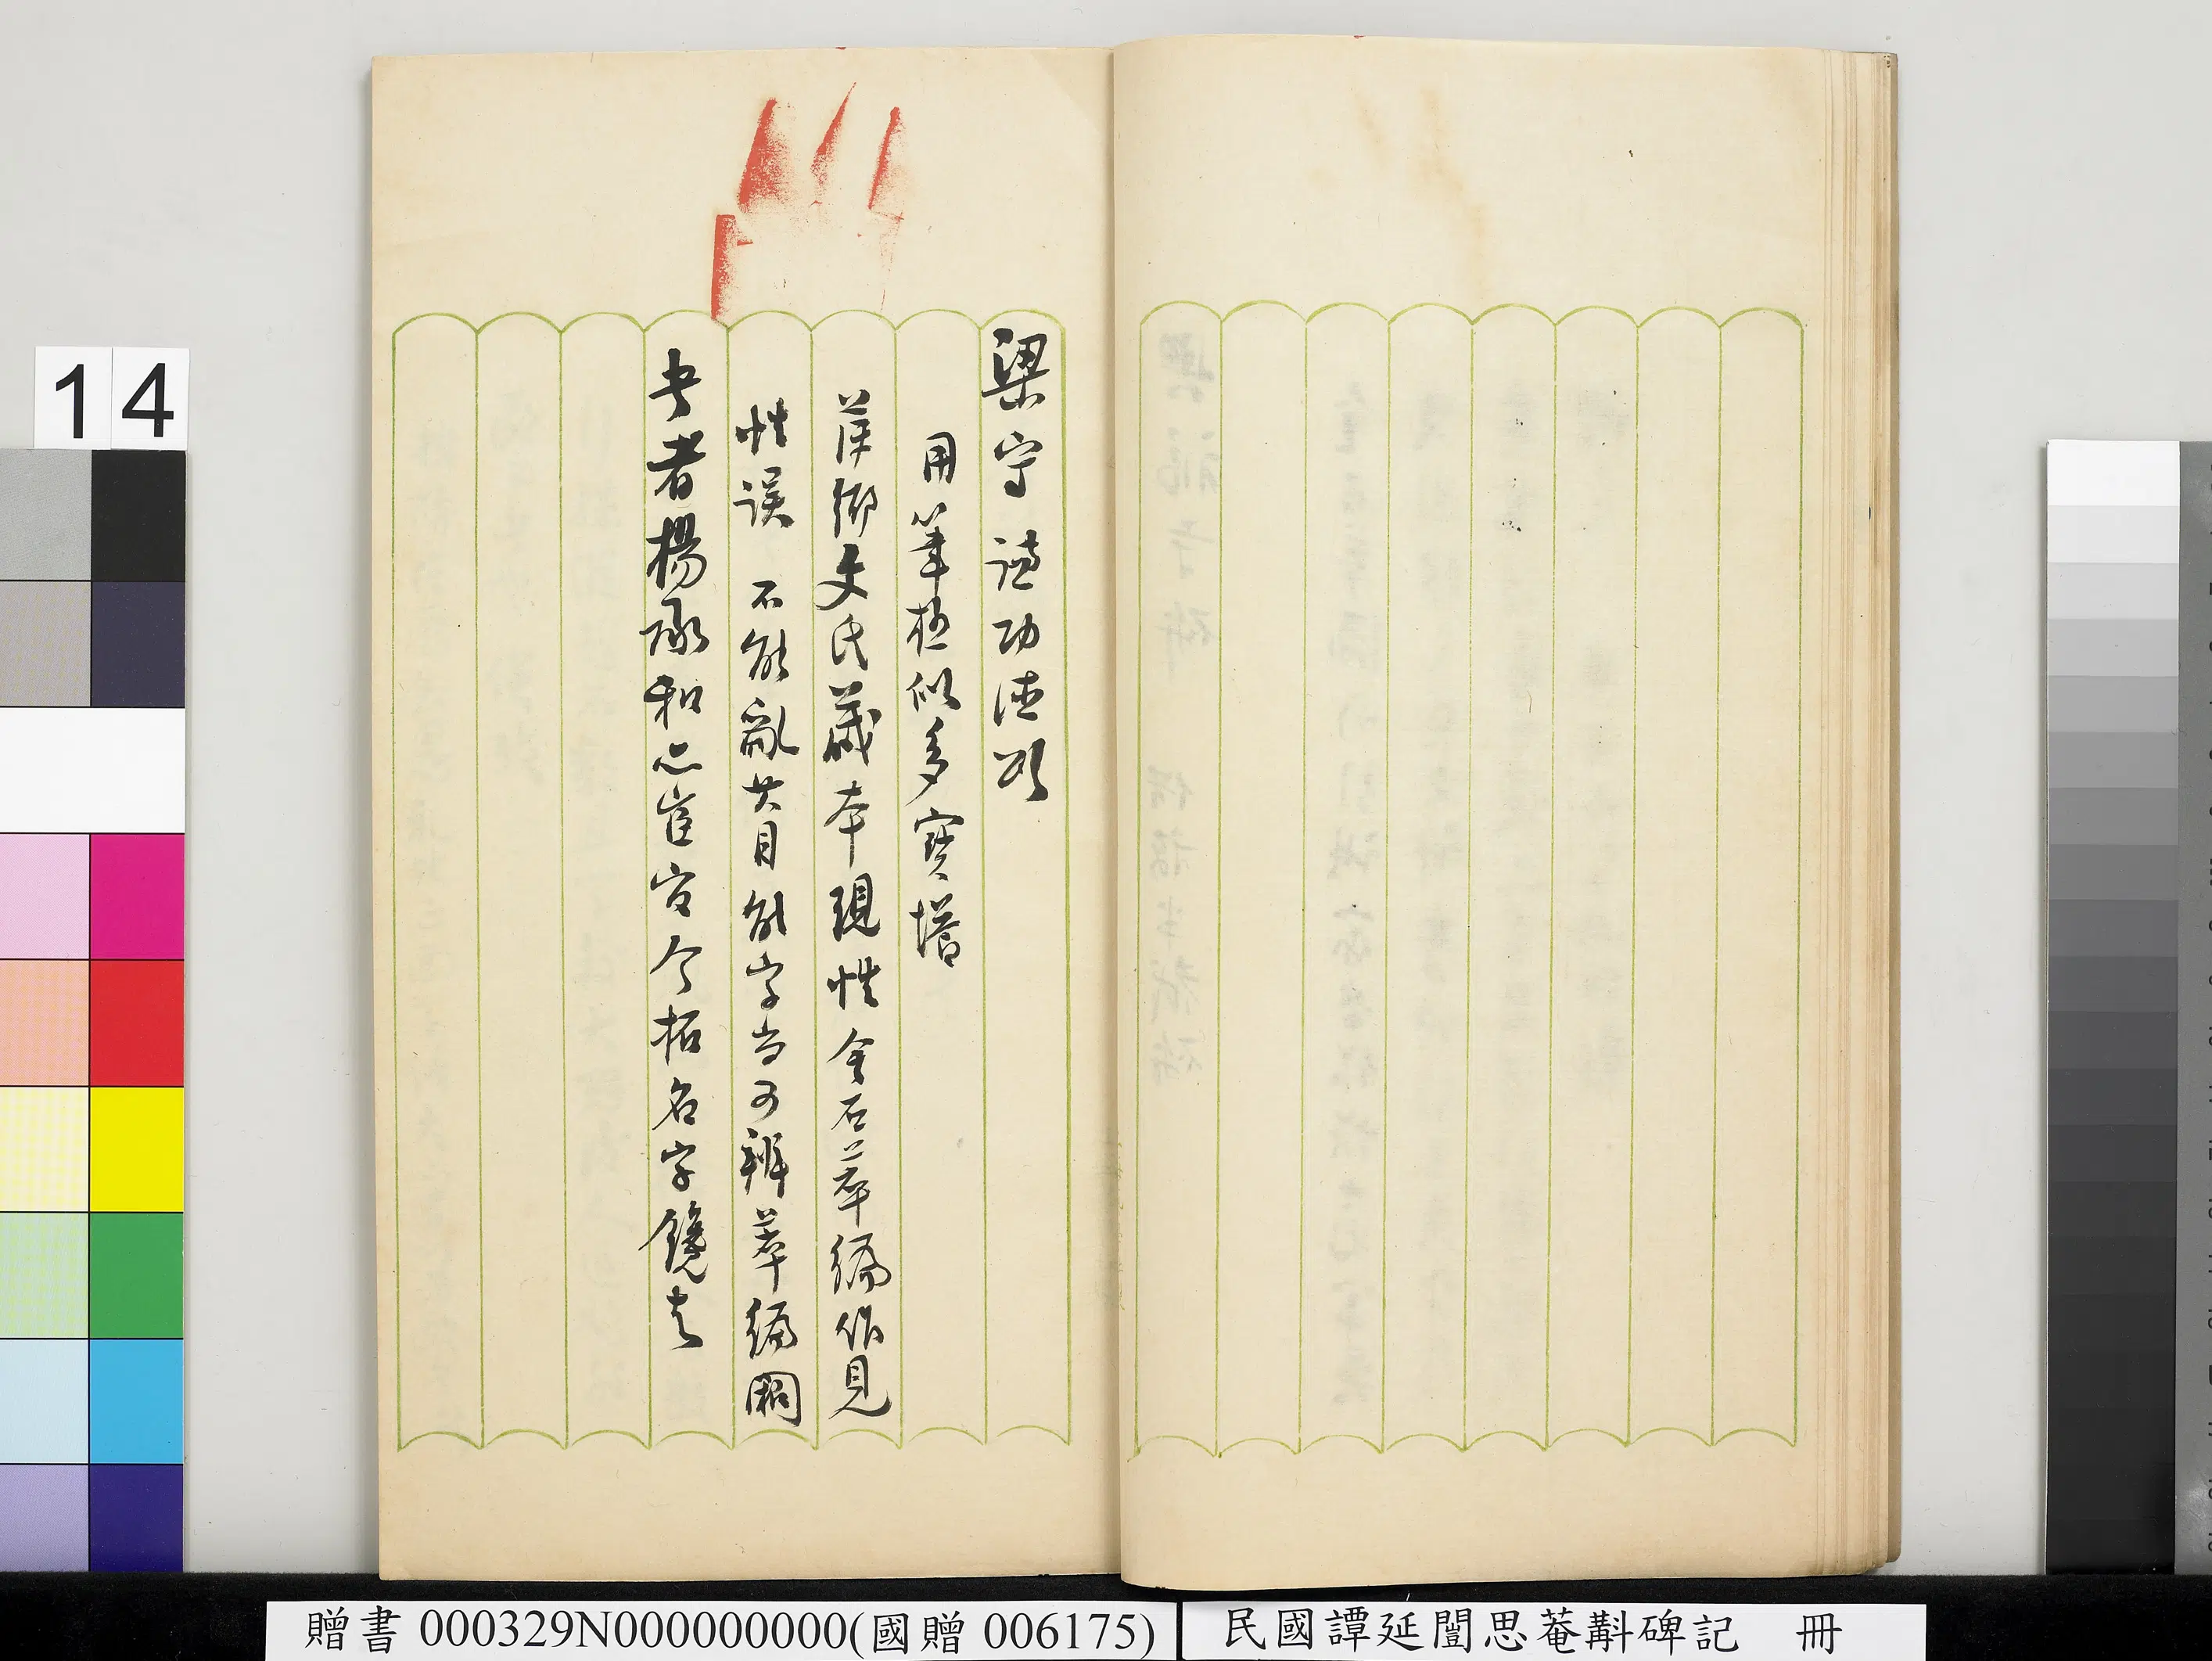 梁守謙功德頌
用筆極似多寶塔
萍鄉文氏藏本現性金石萃編作見
性誤 不能亂其目能字尚可辨萃編闕
書者楊承和亦宦官今拓名字鑱去
14
贈書 000329N000000000(國贈 006175)
民國譚延闓思菴斠碑記 冊